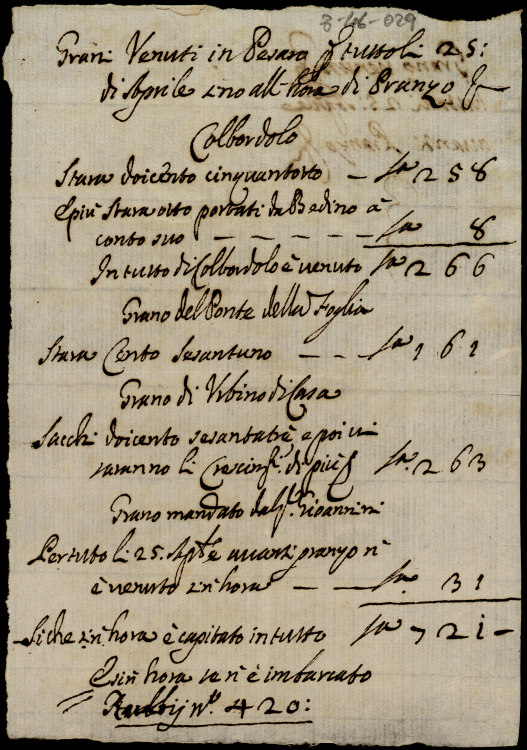 8-46-029
Grani Venuti in Pesaro p tutto li 25:
di Aprile sino all'hora di Pranzo &
Colbordolo
Stara doicento cinquantotto — sa 258
E più stara otto portati da Bedino à
conto suo — — — — — sa 8
In tutto di Colbordolo è venuto sa 266
Grano del Ponte della Foglia
Stara Cento sesantuno — — — sa 161
Grano di Urbino di Casa
Sacchi doicento sesantatrè e poi vi
saranno li di più sa. 263
Grano mandato dal Sr. Gioannini
Per tutto li 25. avanti pranzo n'
è venuto sin hora — — sa. 31
Siche sin hora è capitato in tutto sa 721 —
E sin hora se n'è imbarcato
Rubbij no. 420: